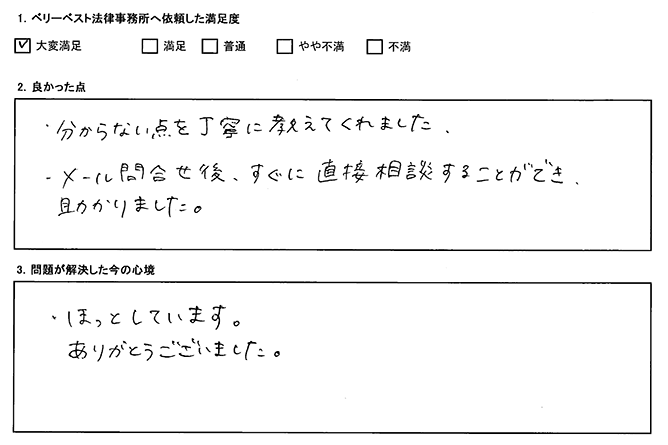 1. ベリーベスト法律事務所へ依頼した満足度
☑ 大変満足 □ 満足 □ 普通 □ やや不満 □ 不満
2. 良かった点
・分からない点を丁寧に教えてくれました、
・メール問合せ後、すぐに直接相談することができ、
助かりました。
3. 問題が解決した今の心境
・ほっとしています。
ありがとうございました。